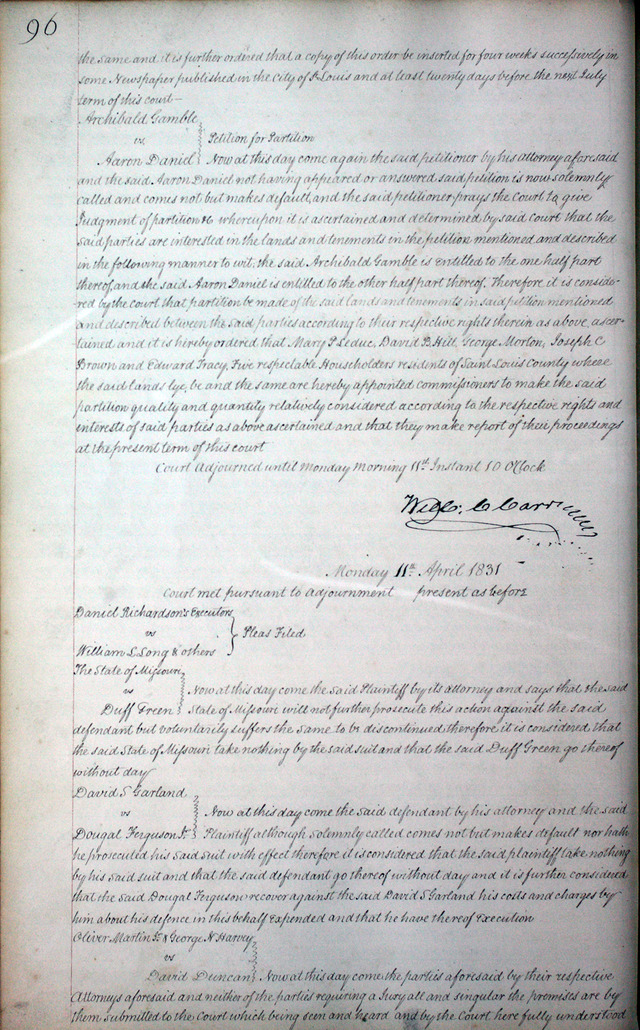 96
the same and it is further ordered that a copy of this order be inserted for four weeks successively in
some Newspaper published in the City of St Louis and at least twenty days before the next July
term of this court—
Archibald Gamble
vs. Petition for Partition
Aaron Daniel Now at this day come again the said petitioner by his attorney aforesaid
and the said Aaron Daniel not having appeared or answered said petition is now solemnly
called and comes not but makes default, and the said petitioner prays the Court to give
Judgment of partition &c whereupon it is ascertained and determined by said court that the
said parties are interested in the lands and tenements in the petition mentioned and described
in the following manner to wit, the said Archibald Gamble is Entitled to the one half part
thereof, and the said Aaron Daniel is entitled to the other half part thereof. Therefore it is conside-
-red by the court that partition be made of the said lands and tenements in said petition mentioned
and described between the said parties according to their respective rights therein as above, ascer-
tained and it is hereby ordered that Mary P Leduc, David B. Hill George Morton, Joseph C
Brown and Edward Tracy, Five respectable Householders residents of Saint Louis County where
the said lands lye, be and the same are hereby appointed commissioners to make the said
partition quality and quantity relatively considered according to the respective rights and
interests of said parties as above ascertained and that they make report of their proceedings
at the present term of this court
Court Adjourned until Monday Morning 11th Instant 10 OClock
Will: C Carr
Monday 11th April 1831
Court met pursuant to adjournment present as before
Daniel Richardson's Executors
vs Pleas Filed
William L Long & others
The State of Missouri
vs Now at this day come the Said Plaintiff by its attorney and says that the said
Duff Green State of Missouri will not further prosecute this action against the said
defendant but voluntarily suffers the same to be discontinued therefore it is considered that
the said State of Missouri take nothing by the said suit and that the said Duff Green go thereof
without day
David S Garland
vs Now at this day come the said defendant by his attorney and the said
Dougal Ferguson Jr Plaintiff although solemnly called comes not but makes default nor hath
he prosecuted his said suit with effect therefore it is considered that the said plaintiff take nothing
by his said suit and that the said defendant go thereof without day and it is further considered
that the said Dougal Ferguson recover against the said David S Garland his costs and charges by
him about his defence in this behalf Expended and that he have thereof Execution
Oliver Martin Jr & George N Harvey
vs
David Duncan Now at this day come the parties aforesaid by their respective
Attorneys aforesaid and neither of the parties requiring a Jury all and singular the premises are by
them submitted to the Court which being seen and heard and by the Court here fully understood